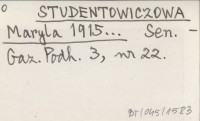 o
STUDENTOWICZOWA
Maryla 1915... Sen. -
Gaz. Podh. 3, nr 22.
BT/045/1583